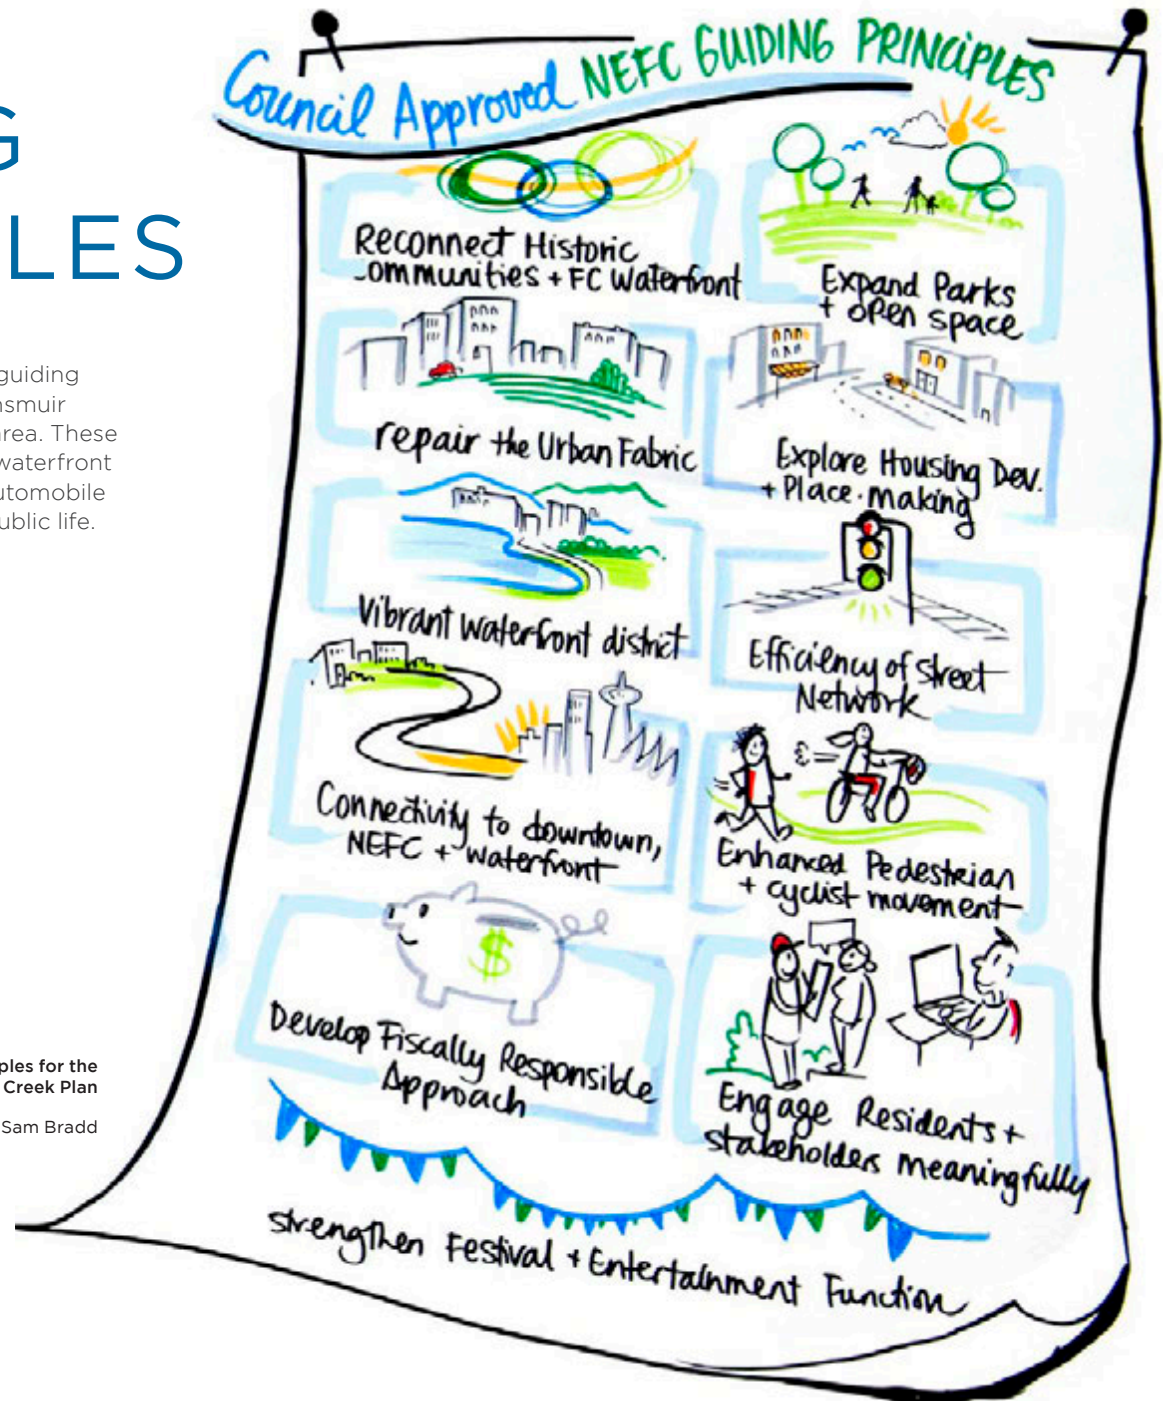 G
LES
guiding
nsmuir
area. These
waterfront
utomobile
ublic life.
ples for the
Creek Plan
Sam Bradd
Council Approved NEFC GUIDING PRINCIPLES
Reconnect Historic
communities + FC Waterfront
Expand Parks
+ open space
repair the Urban Fabric
Explore Housing Dev.
+ Place-making
Vibrant waterfront district
Efficiency of Street
Network
Connectivity to downtown,
NEFC + waterfront
Enhanced Pedestrian
+ cyclist movement
$
Develop Fiscally Responsible
Approach
Engage Residents +
stakeholders meaningfully
strengthen Festival + Entertainment Function